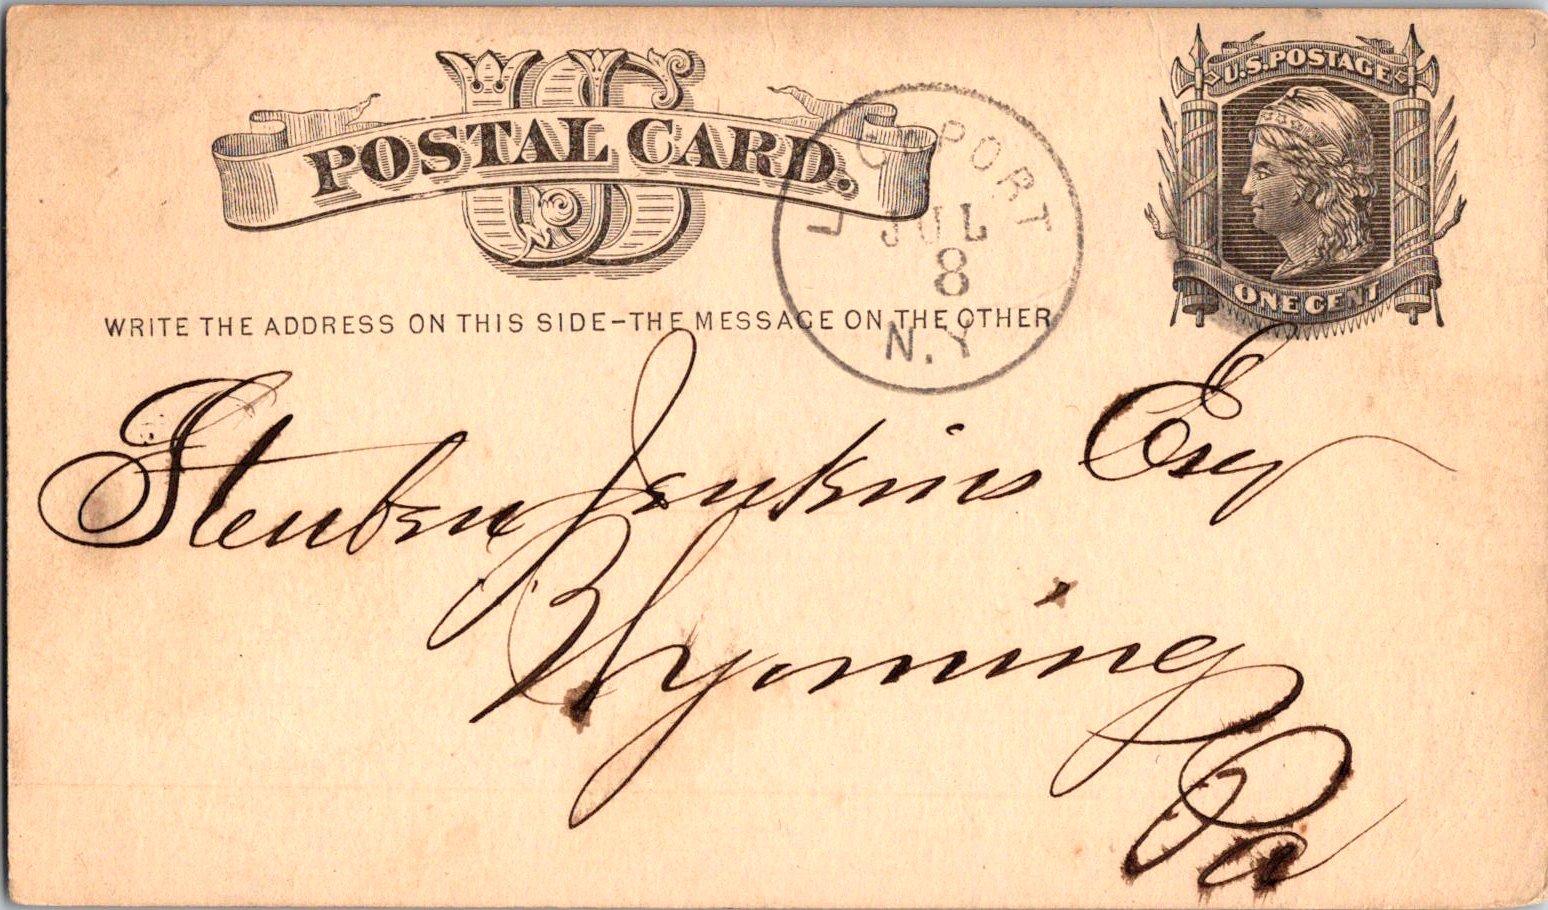 US
POSTAL CARD.
U.S. POSTAGE
ONE CENT
PORT
JUL
8
N.Y
WRITE THE ADDRESS ON THIS SIDE–THE MESSAGE ON THE OTHER
Steuben Jenkins Esq
Wyoming
Pa